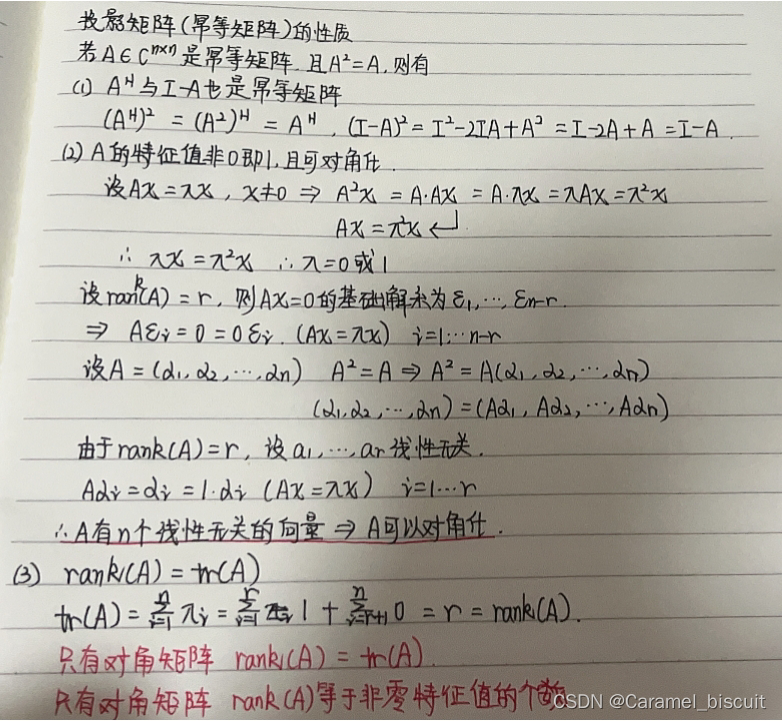 投影矩阵(幂等矩阵)的性质
若A∈Cⁿˣⁿ是幂等矩阵 且A²=A,则有
(1) Aᴴ与I-A也是幂等矩阵
(Aᴴ)² = (A²)ᴴ = Aᴴ , (I-A)² = I²-2IA+A² = I-2A+A = I-A .
(2) A的特征值非0即1,且可对角化.
设AX=λX, X≠0 ⇒ A²X = A·AX = A·λX = λAX = λ²X
AX = λ²X ↵
∴ λX = λ²X ∴ λ=0或1
设rank(A)=r, 则AX=0的基础解系为ε₁,…,εn-r.
⇒ Aεᵢ = 0 = 0εᵢ. (AX=λX) i=1…n-r
设A=(α₁,α₂,…,αn) A²=A ⇒ A²=A(α₁,α₂,…,αn)
(α₁,α₂,…,αn) = (Aα₁, Aα₂,…,Aαn)
由于rank(A)=r, 设a₁,…,ar线性无关.
Aαᵢ=αᵢ=1·αᵢ (AX=λX) i=1…r
∴A有n个线性无关的向量 ⇒ A可以对角化.
(3) rank(A) = tr(A)
tr(A) = ∑ⁿᵢ₌₁ λᵢ = ∑ʳᵢ₌₁ 1 + ∑ⁿᵢ₌ᵣ₊₁ 0 = r = rank(A).
只有对角矩阵 rank(A) = tr(A).
只有对角矩阵 rank(A)等于非零特征值的个数
CSDN @Caramel_biscuit